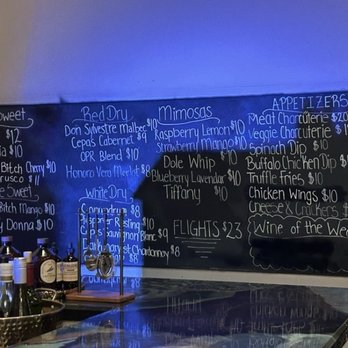 Sweet
$12
$11
Bitch Cherry $10
$13
Sweet
Bitch Mango $10
Donna $10
Red Dry
Don Sylvestre Malbec $10
Cepas Cabernet $9
OPR Blend $10
Honoro Vera Merlot $8
White Dry
$8
Riesling $8
Sauvignon Blanc $9
Chardonnay $8
Mimosas
Raspberry Lemon $10
Strawberry Mango $10
Dole Whip $10
Blueberry Lavendar $10
Tiffany $10
FLIGHTS $23
APPETIZERS
Meat Charcuterie $20
Veggie Charcuterie $1
Spinach Dip $10
Buffalo Chicken Dip $
Truffle Fries $10
Chicken Wings $10
Cheese & Crackers $
Wine of the